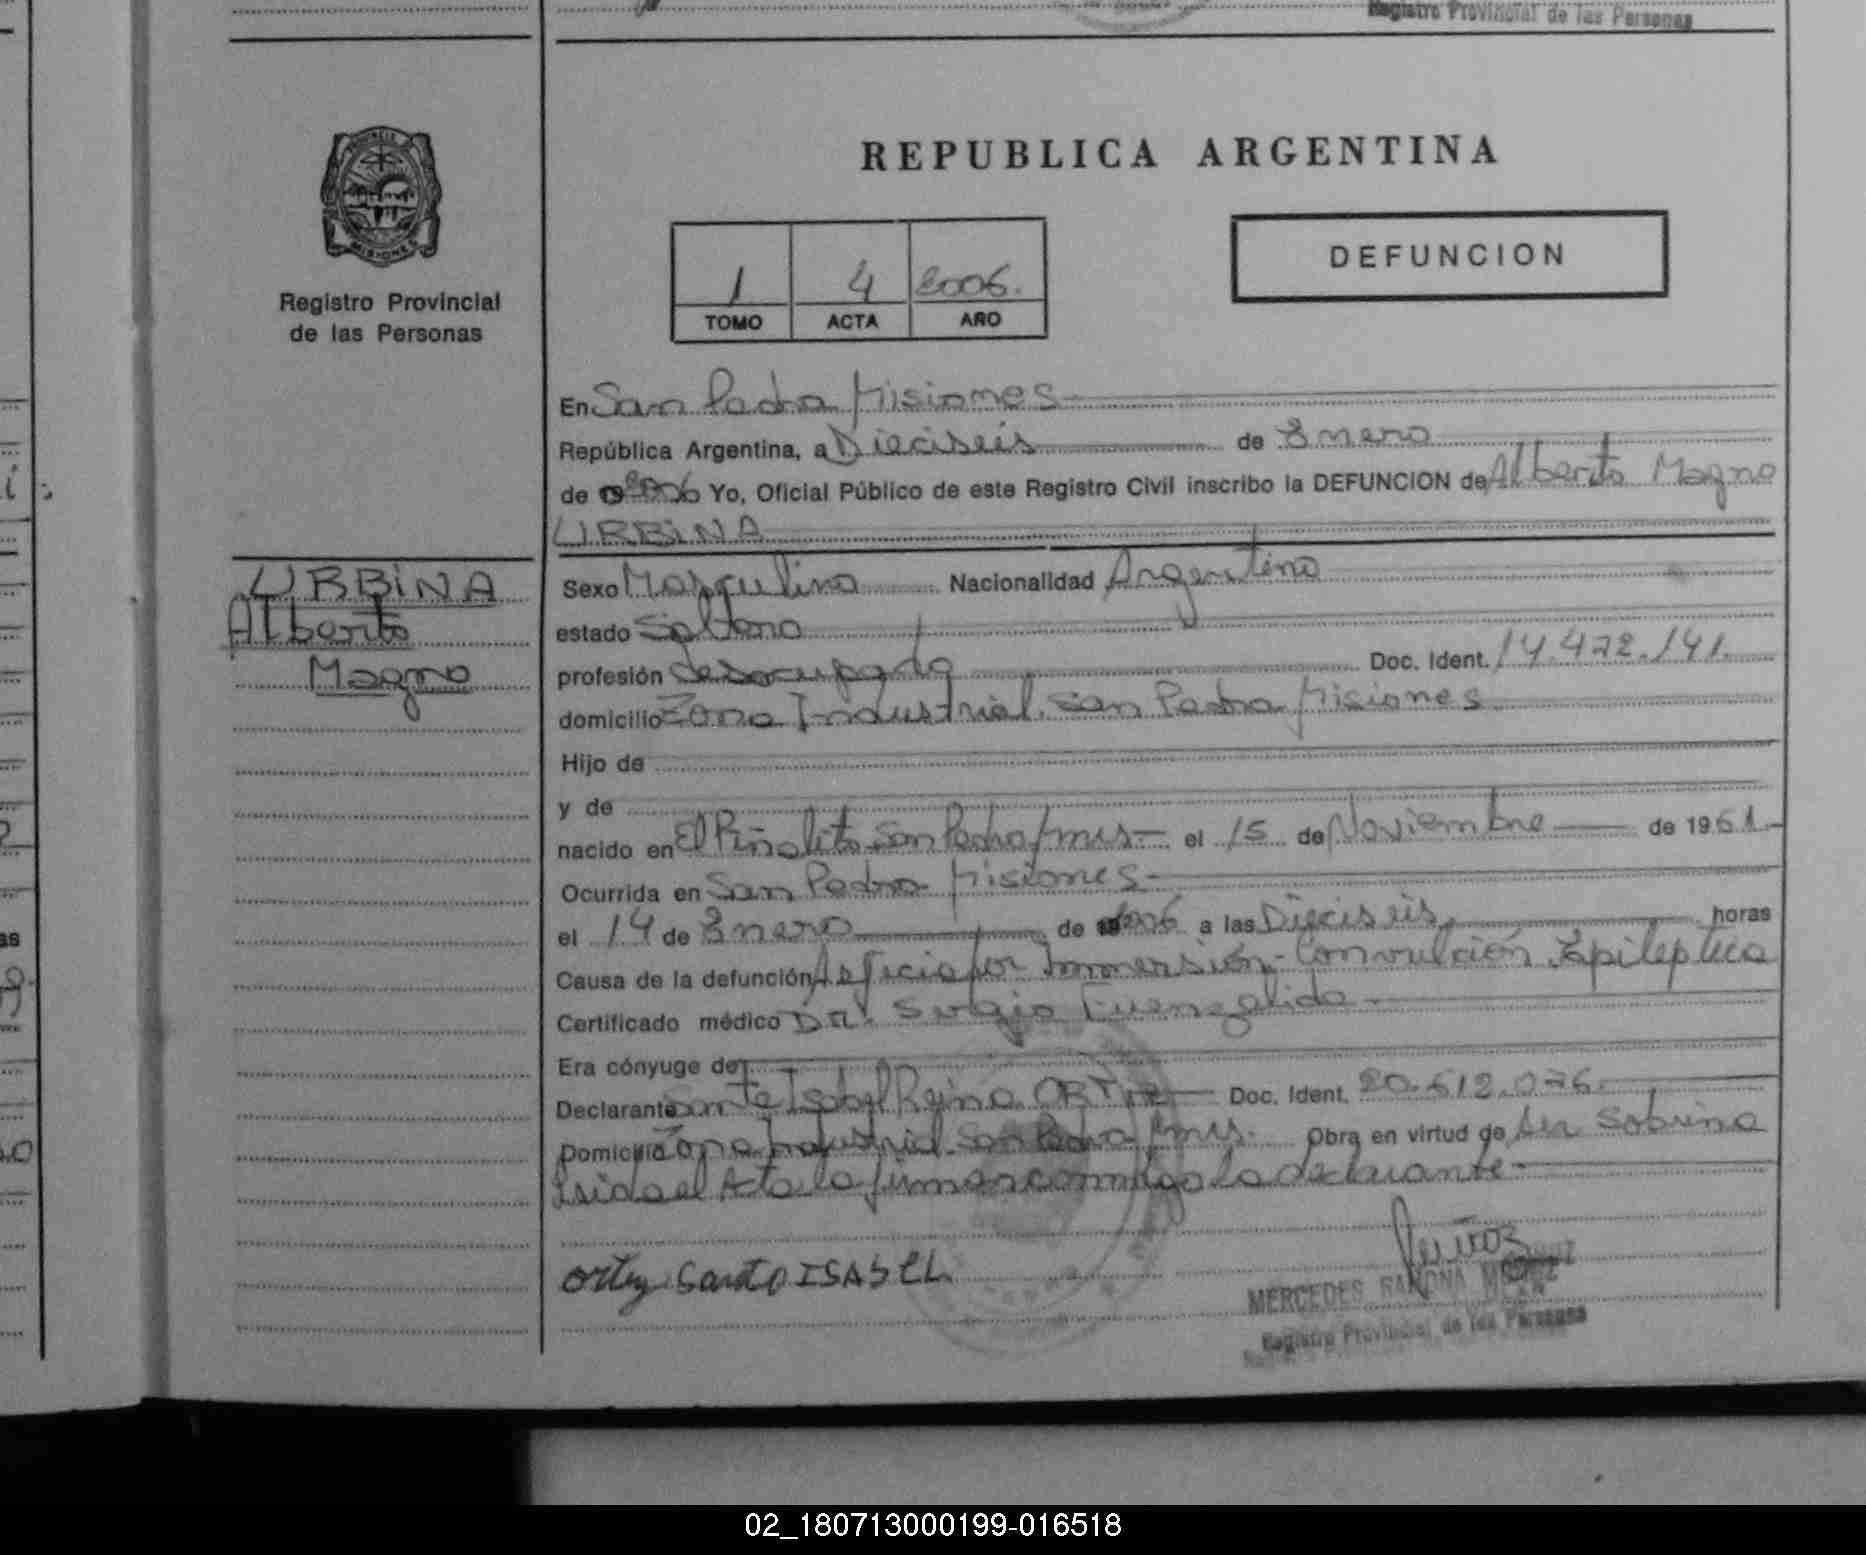 Registro Provincial de las Personas
PROVINCIA
MISIONES
Registro Provincial
de las Personas
REPUBLICA ARGENTINA
1 4 2006.
TOMO ACTA AÑO
DEFUNCION
En San Pedro Misiones
República Argentina, a Dieciseis de Enero
de 2006 Yo, Oficial Público de este Registro Civil inscribo la DEFUNCION de Alberto Magno
URBINA
URBINA
Alberto
Magno
Sexo Masculino Nacionalidad Argentino
estado Soltero
profesión desocupado Doc. Ident. 14.472.141.
domicilio Zona Industrial. San Pedro Misiones
Hijo de
y de
nacido en El Piñalito San Pedro Mns. el 15 de Noviembre de 1961
Ocurrida en San Pedro Misiones
el 14 de Enero de 2006 a las Dieciseis, horas
Causa de la defunción Asficia por Inmersión - Convulción Epileptica
Certificado médico DR. Sergio Fuenzalida
Era cónyuge de
Declarante Isabel Regina ORTIZ Doc. Ident. 20.612.076.
Domicilio Zona Industrial San Pedro Mns. Obra en virtud de ser sobrina
Leida el Acta la firma conmigo la declarante
Ortiz Santo ISABEL
MERCEDES RAMONA
Registro Provincial de las Personas
02_180713000199-016518